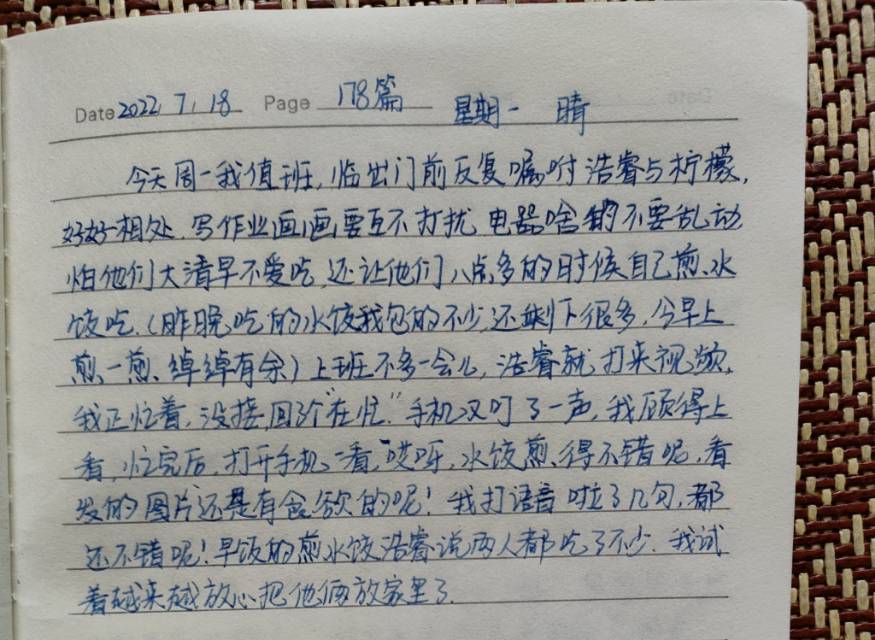 Date 2022, 7, 18 Page 178篇 星期一 晴
今天周一我值班,临出门前反复嘱咐浩睿与柠檬,
好好相处.写作业画画要互不打扰.电器啥的不要乱动
怕他们大清早不爱吃.还让他们八点多的时候自己煎水
饺吃.(昨晚吃的水饺我包的不少.还剩下很多,今早上
煎一煎、绰绰有余)上班不多一会儿,浩睿就打来视频,
我正忙着,没接,回个"在忙".手机又叮了一声,我顾得上
看,忙完后,打开手机一看,哎呀,水饺煎得不错呢,看
发的图片还是有食欲的呢!我打语音啦了几句,都
还不错呢!早饭的煎水饺浩睿说两人都吃了不少.我试
着越来越放心把他俩放家里了.